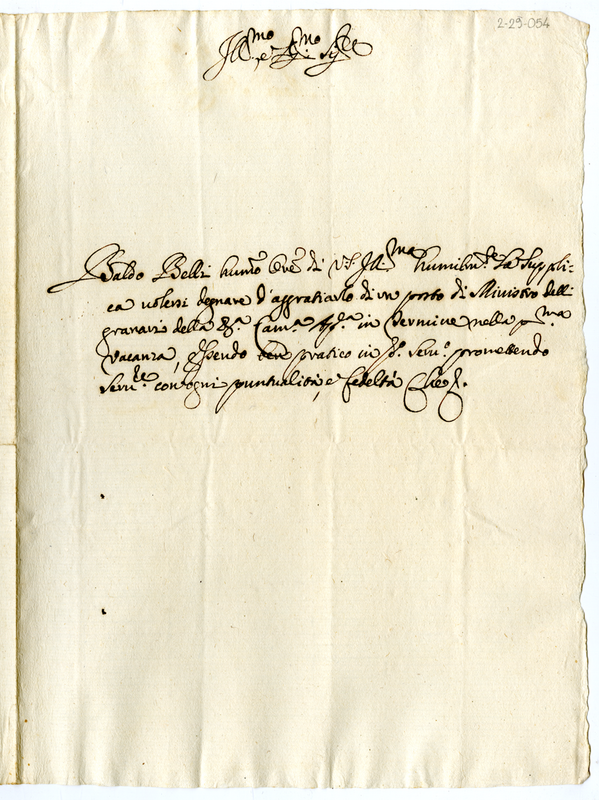 2-29-054
Ill.mo e R.mo Sig.re
Baldo Belli humo Ore di V.S. Ill.ma humilm.te La Suppli-
ca volersi degnare d'aggratiarlo di un posto di Ministro delli
granari della R.a Cam.a Ap.a in Termine nella p.ma
Vacanza, essendo ben pratico in d.o Serv.o promettendo
Serv.re con ogni puntualità, e fedeltà Che